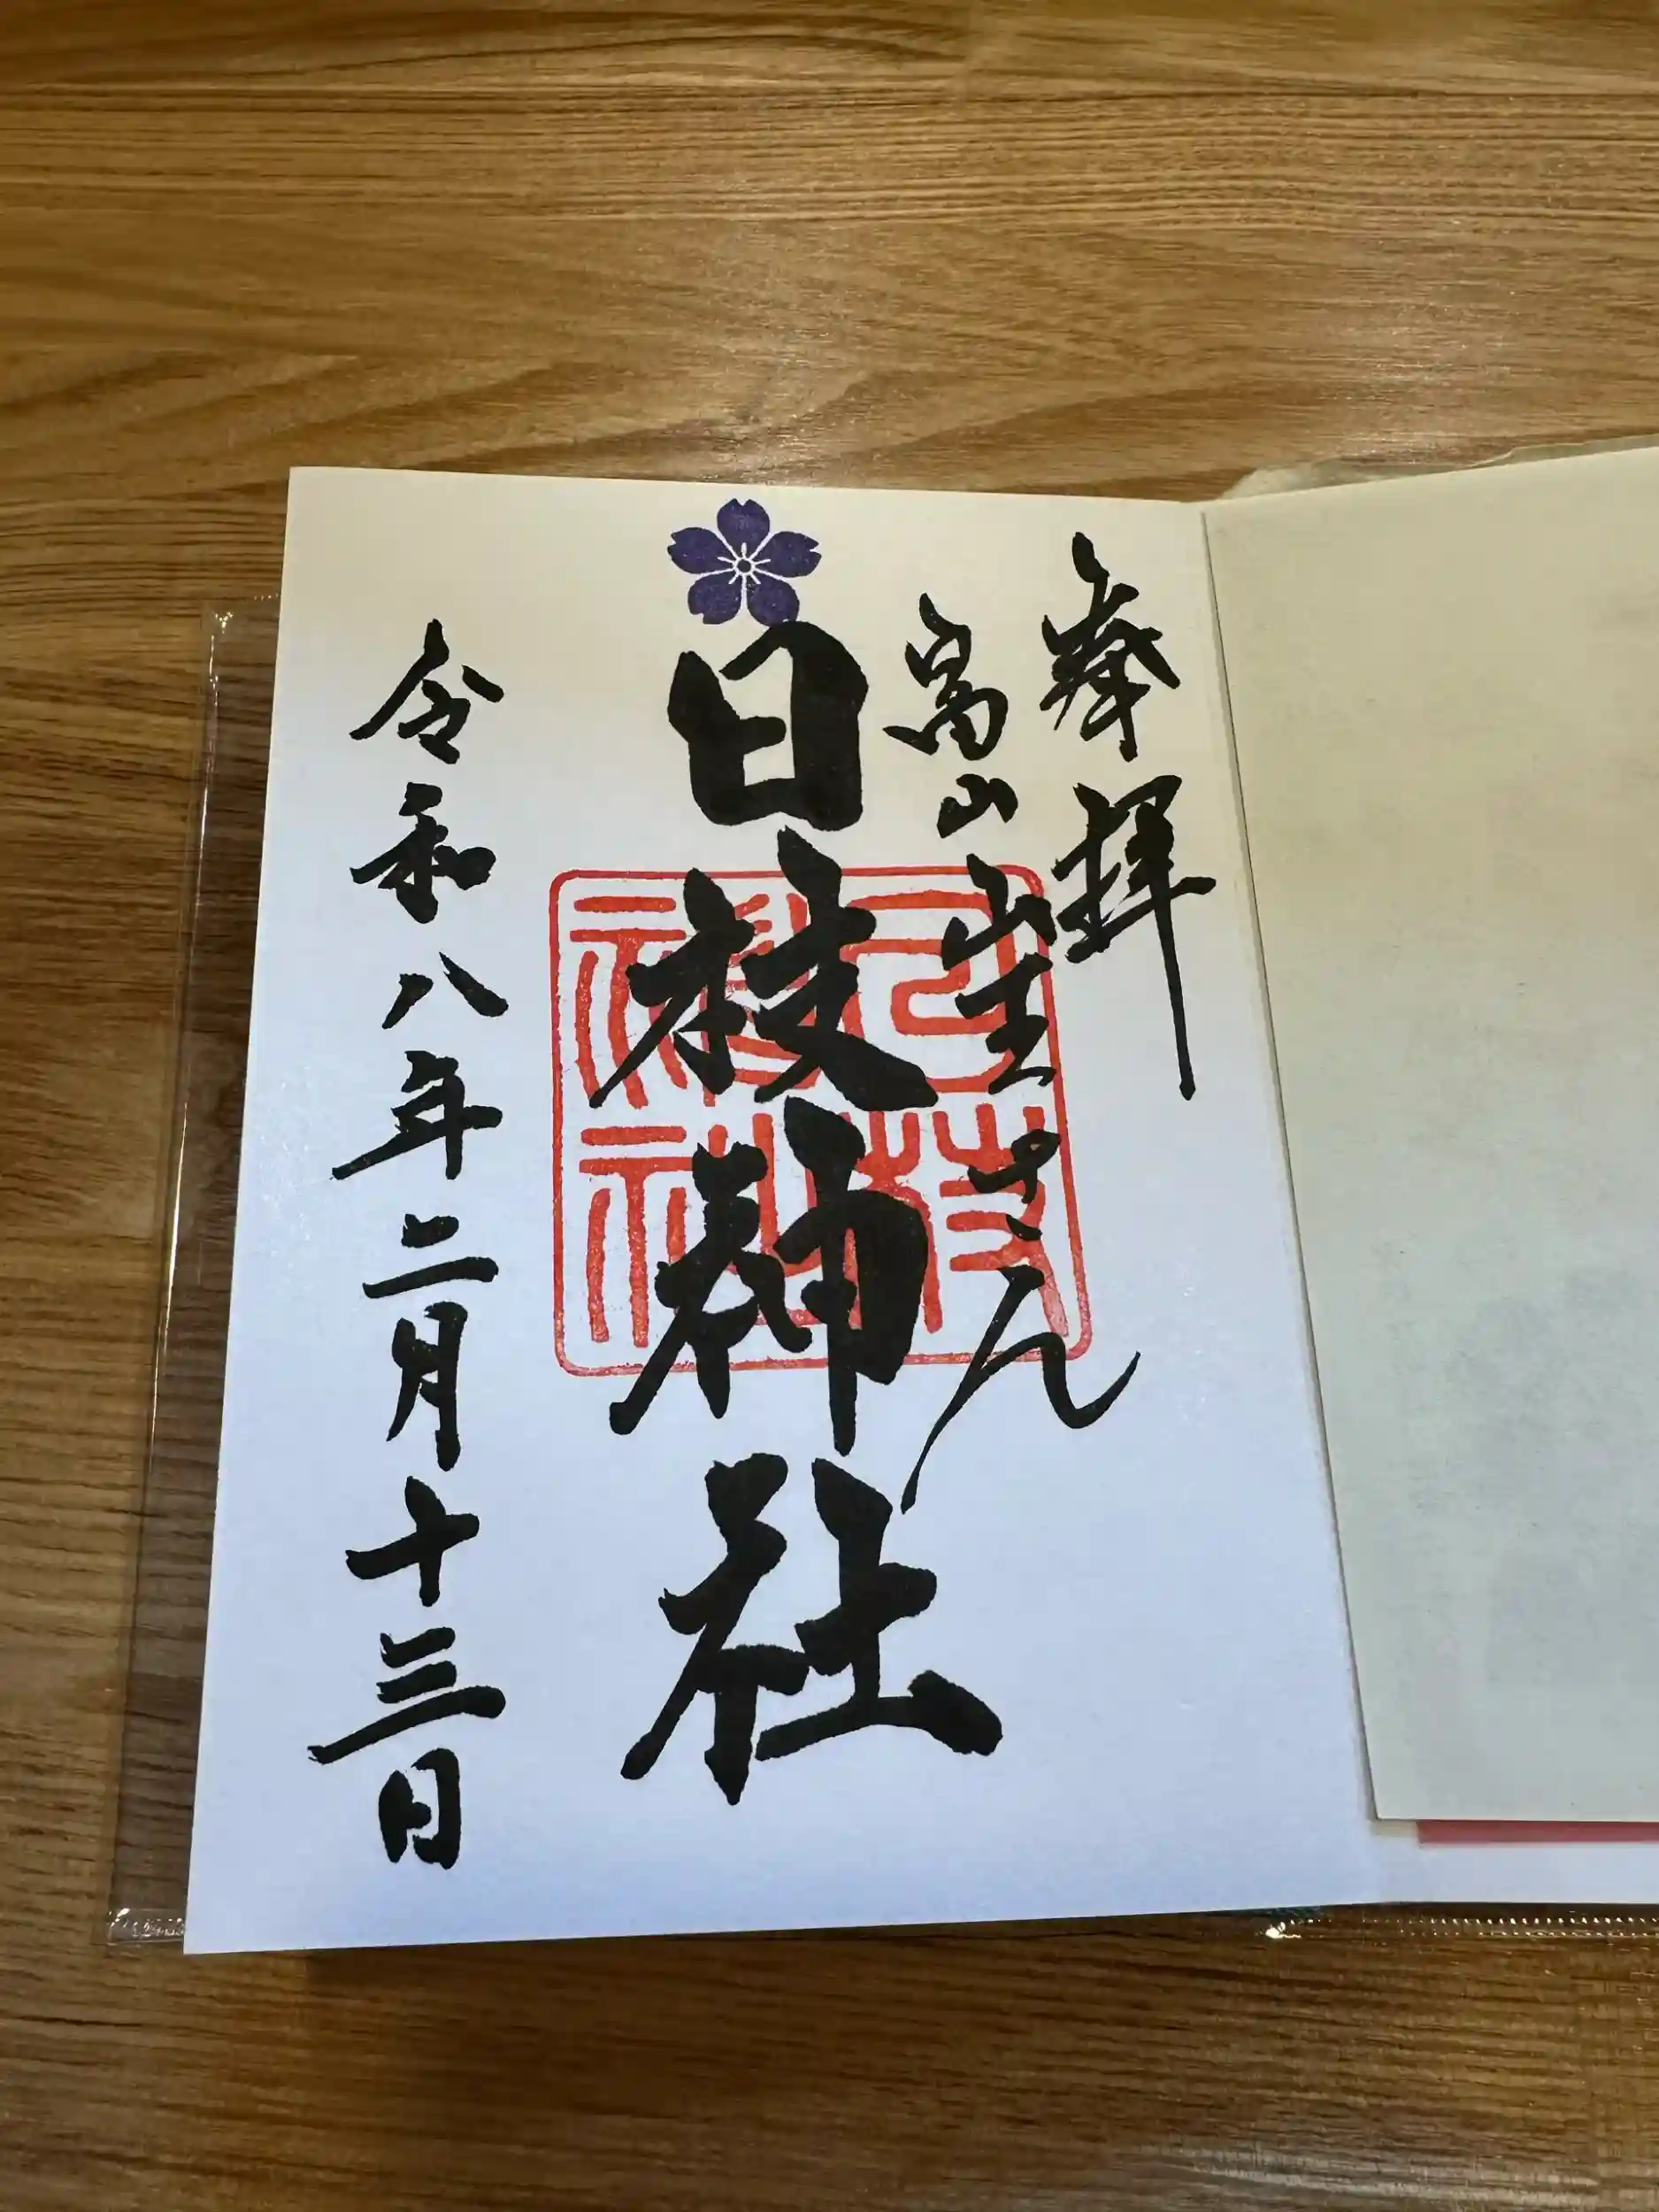 奉拝
高山山王さん
日枝神社
日枝神社
令和八年二月十三日